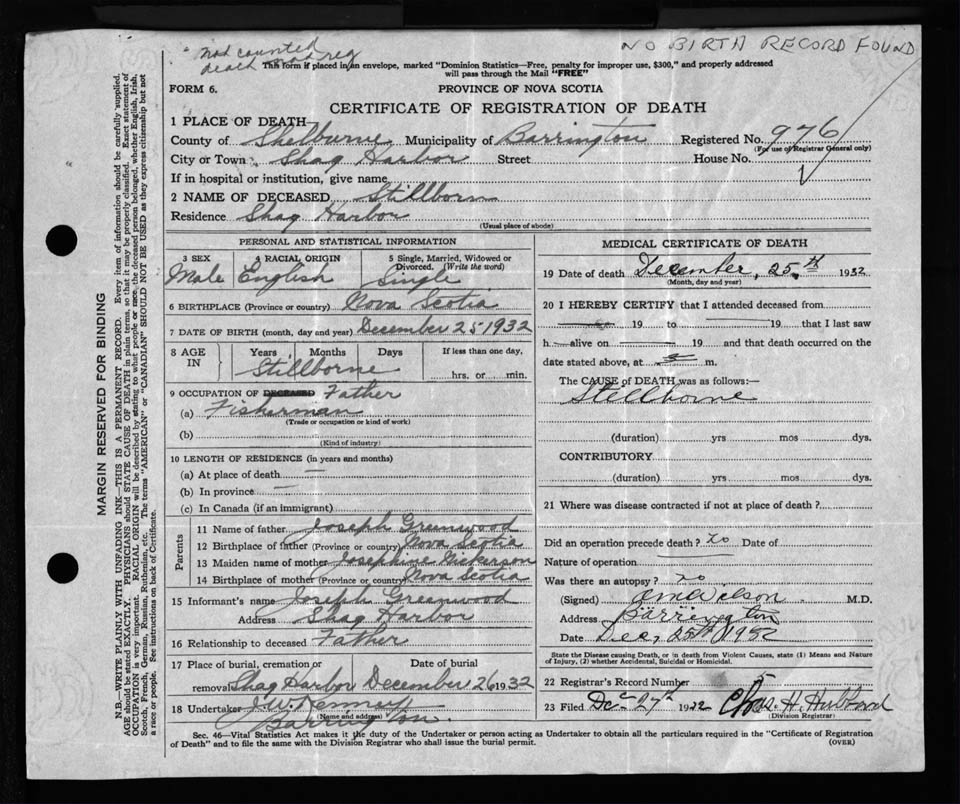 Not counted
death and reg
NO BIRTH RECORD FOUND
This form if placed in an envelope, marked "Dominion Statistics—Free, penalty for improper use, $300," and properly addressed
will pass through the Mail "FREE"
FORM 6.
PROVINCE OF NOVA SCOTIA
CERTIFICATE OF REGISTRATION OF DEATH
1 PLACE OF DEATH
County of Shelburne Municipality of Barrington Registered No. 976
(For use of Registrar General only)
City or Town Shag Harbor Street House No.
If in hospital or institution, give name
2 NAME OF DECEASED Stillborn
Residence Shag Harbor
(Usual place of abode)
PERSONAL AND STATISTICAL INFORMATION
3 SEX 4 RACIAL ORIGIN 5 Single, Married, Widowed or
Divorced. (Write the word)
Male English Single
6 BIRTHPLACE (Province or country) Nova Scotia
7 DATE OF BIRTH (month, day and year) December 25 1932
8 AGE IN Years Months Days If less than one day,
Stillborne
hrs. or min.
9 OCCUPATION OF DECEASED Father
(a) Fisherman
(Trade or occupation or kind of work)
(b)
(Kind of industry)
10 LENGTH OF RESIDENCE (in years and months)
(a) At place of death —
(b) In province —
(c) In Canada (if an immigrant)
Parents
11 Name of father Joseph Greenwood
12 Birthplace of father (Province or country) Nova Scotia
13 Maiden name of mother Josephine Nickerson
14 Birthplace of mother (Province or country) Nova Scotia
15 Informant's name Joseph Greenwood
Address Shag Harbor
16 Relationship to deceased Father
17 Place of burial, cremation or Date of burial
removal Shag Harbor December 26 1932
18 Undertaker J.W. Kenney
(Name and address)
Barrington.
MEDICAL CERTIFICATE OF DEATH
19 Date of death December, 25th 1932
(Month, day and year)
20 I HEREBY CERTIFY that I attended deceased from
— 19 to — 19 that I last saw
h — alive on — 19 and that death occurred on the
date stated above, at m.
The CAUSE of DEATH was as follows:—
Stillborne
(duration) yrs mos dys.
CONTRIBUTORY
(duration) yrs mos dys.
21 Where was disease contracted if not at place of death?
Did an operation precede death? no Date of
Nature of operation
Was there an autopsy? no
(Signed) Wilson M.D.
Address Barrington
Date Dec, 25th 1932
State the Disease causing Death, or in death from Violent Causes, state (1) Means and Nature
of Injury, (2) whether Accidental, Suicidal or Homicidal.
22 Registrar's Record Number 5
23 Filed Dec 27th 1932 Chas. H. Hubbard
(Division Registrar)
Sec. 46—Vital Statistics Act makes it the duty of the Undertaker or person acting as Undertaker to obtain all the particulars required in the "Certificate of Registration
of Death" and to file the same with the Division Registrar who shall issue the burial permit.
(OVER)
MARGIN RESERVED FOR BINDING
N.B.—WRITE PLAINLY WITH UNFADING INK—THIS IS A PERMANENT RECORD. Every item of information should be carefully supplied.
AGE should be stated EXACTLY. PHYSICIANS should STATE CAUSE OF DEATH in plain terms, so that it may be properly classified. Exact statement of
OCCUPATION is very important. RACIAL ORIGIN will be described by stating to what people or race the deceased person belonged, whether English, Irish,
Scotch, French, German, Russian, Ruthenian, etc. The terms "AMERICAN" or "CANADIAN" SHOULD NOT BE USED as they express citizenship but not
a race or people. See instructions on back of Certificate.